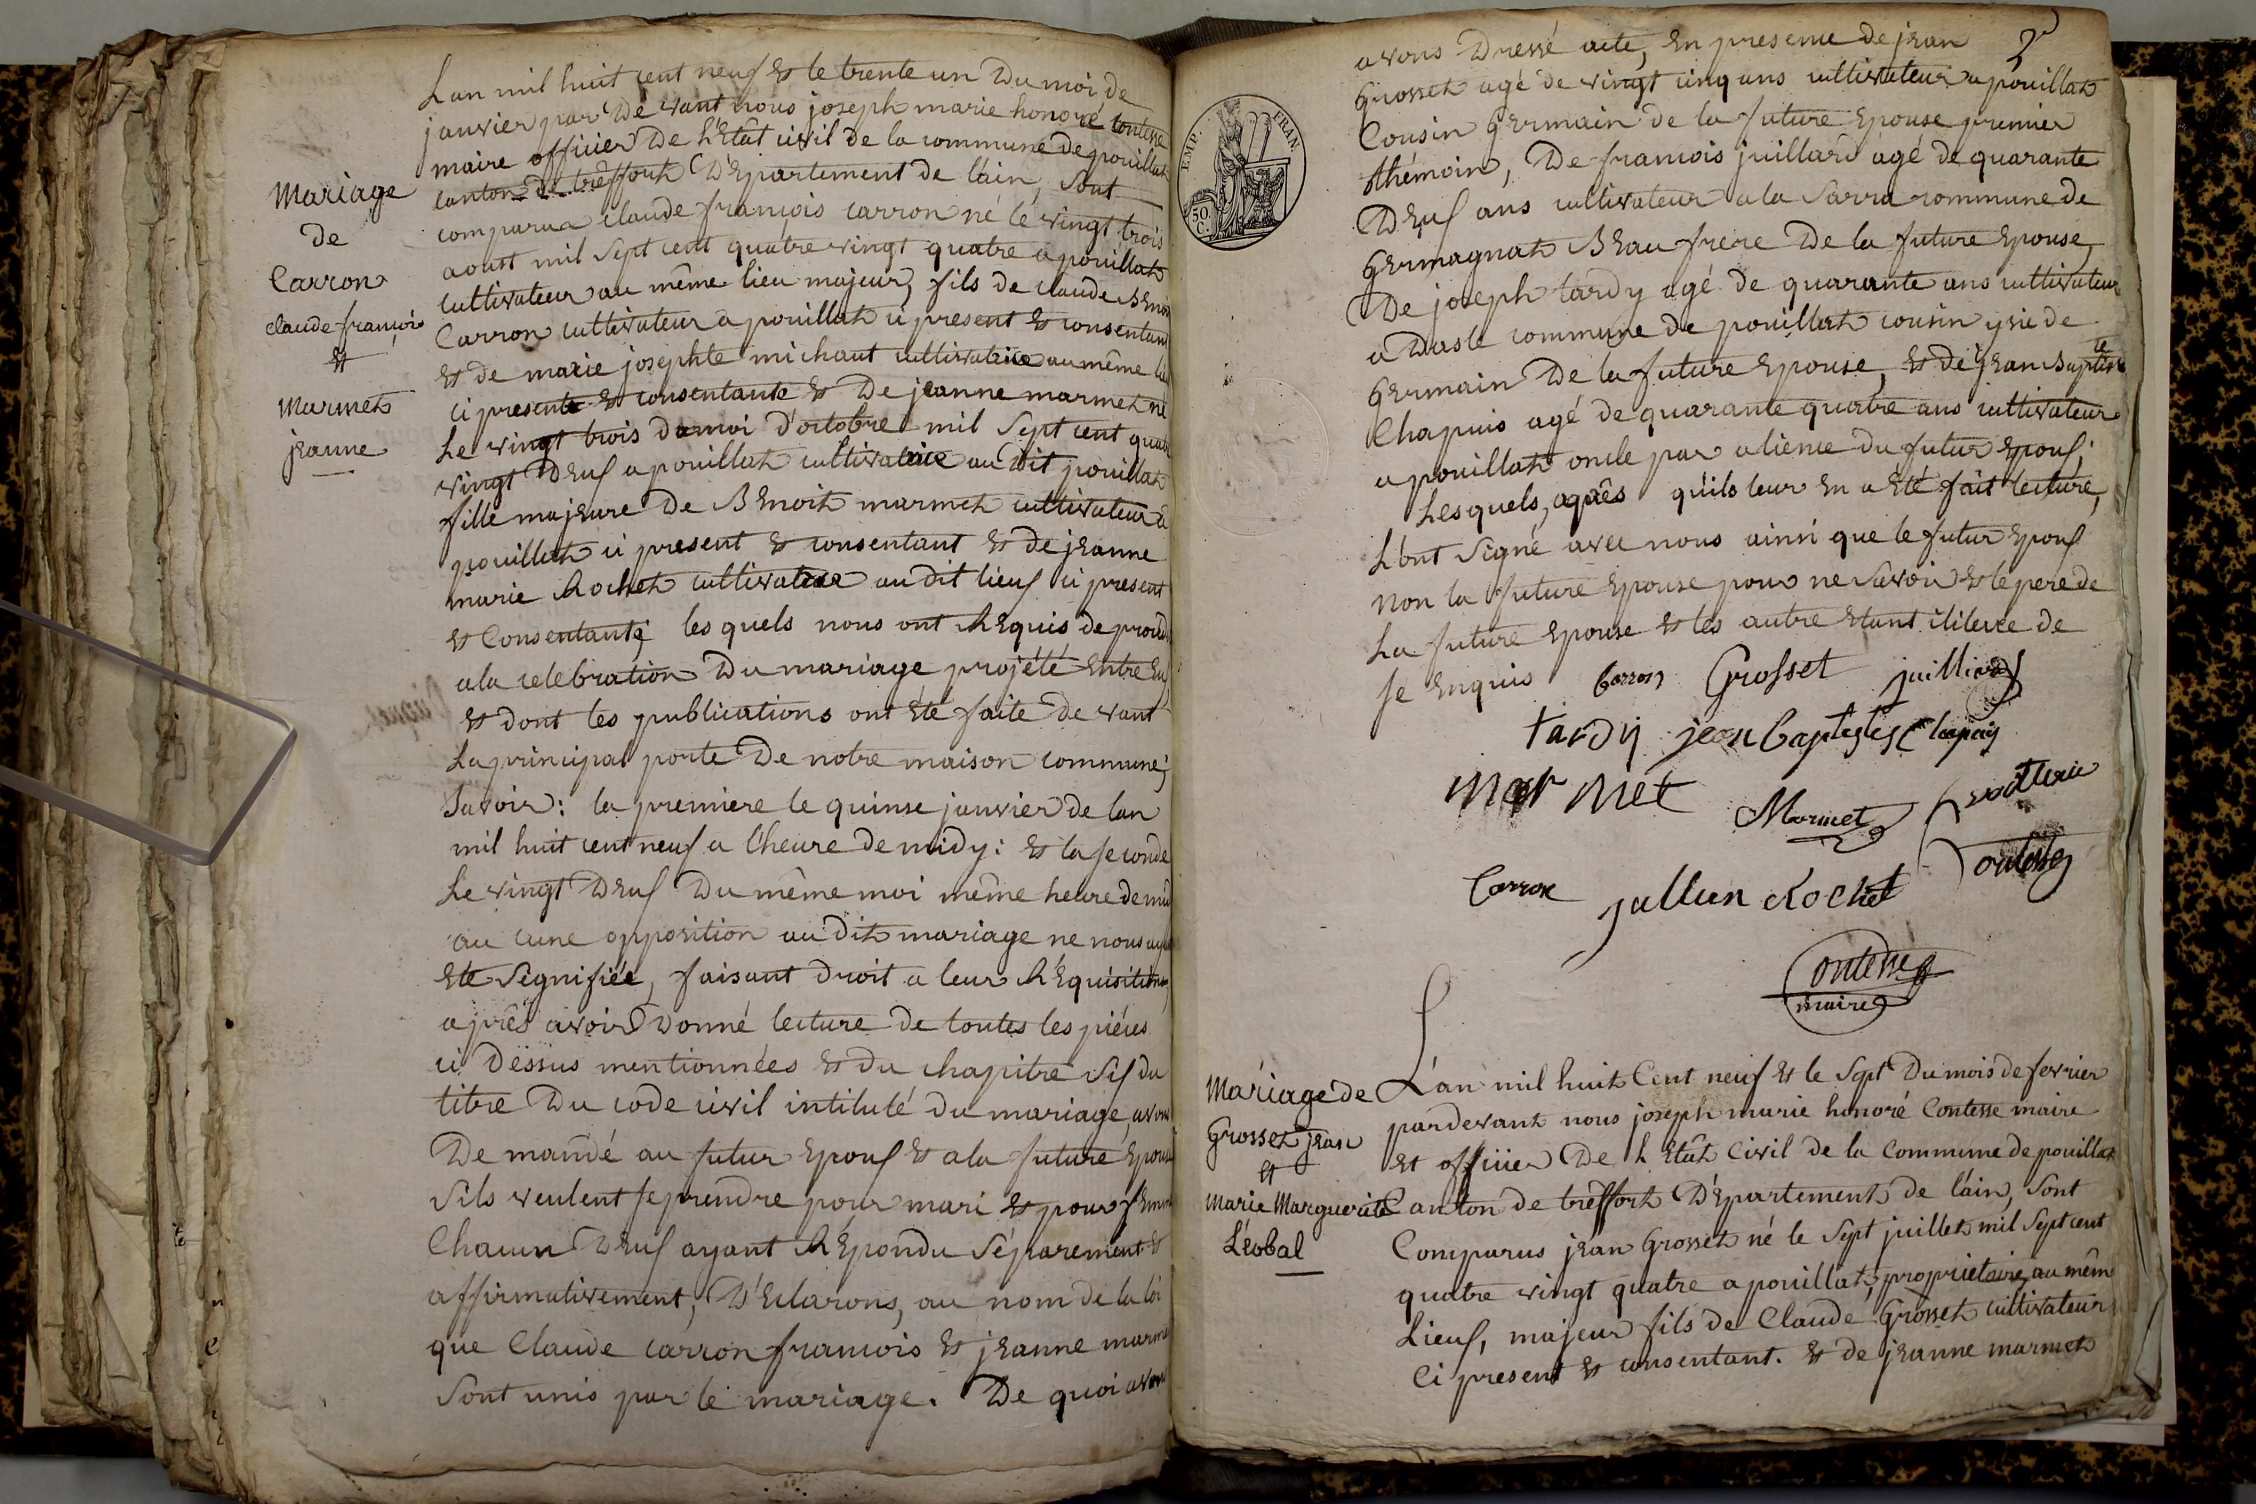 Mariage
de
Carron
claude françois
et
Marmet
jeanne
L'an mil huit cent neuf et le trente un du moi de
janvier par devant nous joseph marie honoré contesse
maire officier de l'Etât civil de la commune de pouillat
canton de treffort Département de l'ain, Sont
comparu claude françois carron né le vingt trois
aoust mil sept cent quatre vingt quatre a pouillat
cultivateur au même lieu majeur, fils de claude Benoi
Carron cultivateur a pouillat ci present et consentant
et de marie josephte michaut cultivatrice au même lieu
ci presente et consentante et De jeanne marmet né
Le vingt trois du moi d'octobre mil sept cent quatre
vingt Deuf a pouillat cultivatrice au dit pouillat
fille majeure De Benoit marmet cultivateur à
pouillat ci present et consentant et de jeanne
marie Rochet cultivatrice au dit lieuf ci present
et Consentante, les quels nous ont Réquis de procéd
a la celebration Du mariage projété Entre Euf
et dont les publications ont été faite De vant
La principal porte De notre maison commune,
Savoir: la premiere le quinse janvier de lan
mil huit cent neuf a l'heure de midy: et la seconde
Le vingt Deuf Du même moi même heure de mid
au cune opposition au dit mariage ne nous ay
Eté Segnifiée, faisant droit a leur Réquisition,
après avoir Donné lecture de toutes les piéces
ci Dessus mentionnées et du chapitre Sif du
titre Du code civil intitulé du mariage, avons
De mandé au futur Epouf et a la future Epouse
Sils veulent se prendre pour mari et pour femme
Chacun Deuf ayant Répondu Séparement et
affirmativement, Déclarons, au nom de la loi
que Claude carron francois et jeanne marmet
Sont unis par le mariage. De quoi avons
EMP. FRAN.
50. C.
avons Dressé acte, En presence de jean
Grosset agé de vingt cinq ans cultivateur a pouillat
Cousin Germain de la future Epouse premier
thémoin, De francois juillard agé de quarante
Deuf ans cultivateur a la Sarra commune de
Germagnat Beau frere De la future Epouse,
De joseph tardy agé de quarante ans cultivateur
a Dasle commune de pouillat cousin ysie de
Germain De la future Epouse, et de jean Baptiste
Chapuis agé de quarante quatre ans cultivateur
a pouillat oncle par alience du futur Epouf.
Lesquels, après qu'ils leur En a Eté fait lecture,
L'ont Signé avec nous ainsi que le futur Epouf
Non la future Epouse pour ne Savoir et le pere de
La future Epouse et les autre Etant iliteree de
se Enquis Carron Grosset juilliard
tardy jean baptistes Chapuis
mar met Marmet
Contesse
Carron jullien Rochet
Contesse
maire
Mariage de
Grosset jean
et
Marie Marguerite
Léobal
L'an mil huit Cent neuf et le Sept Du mois de fevrier
pardevant nous joseph marie honoré Contesse maire
Et officier De L'Etât Civil de la Commune de pouillat
Canton de treffort Département de l'ain, Sont
Comparus jean Grosset né le Sept juillet mil Sept cent
quatre vingt quatre a pouillat, propriétaire, au même
Lieuf, majeur fils de Claude Grosset cultivateur
Ci present et consentant. et de jeanne marmet